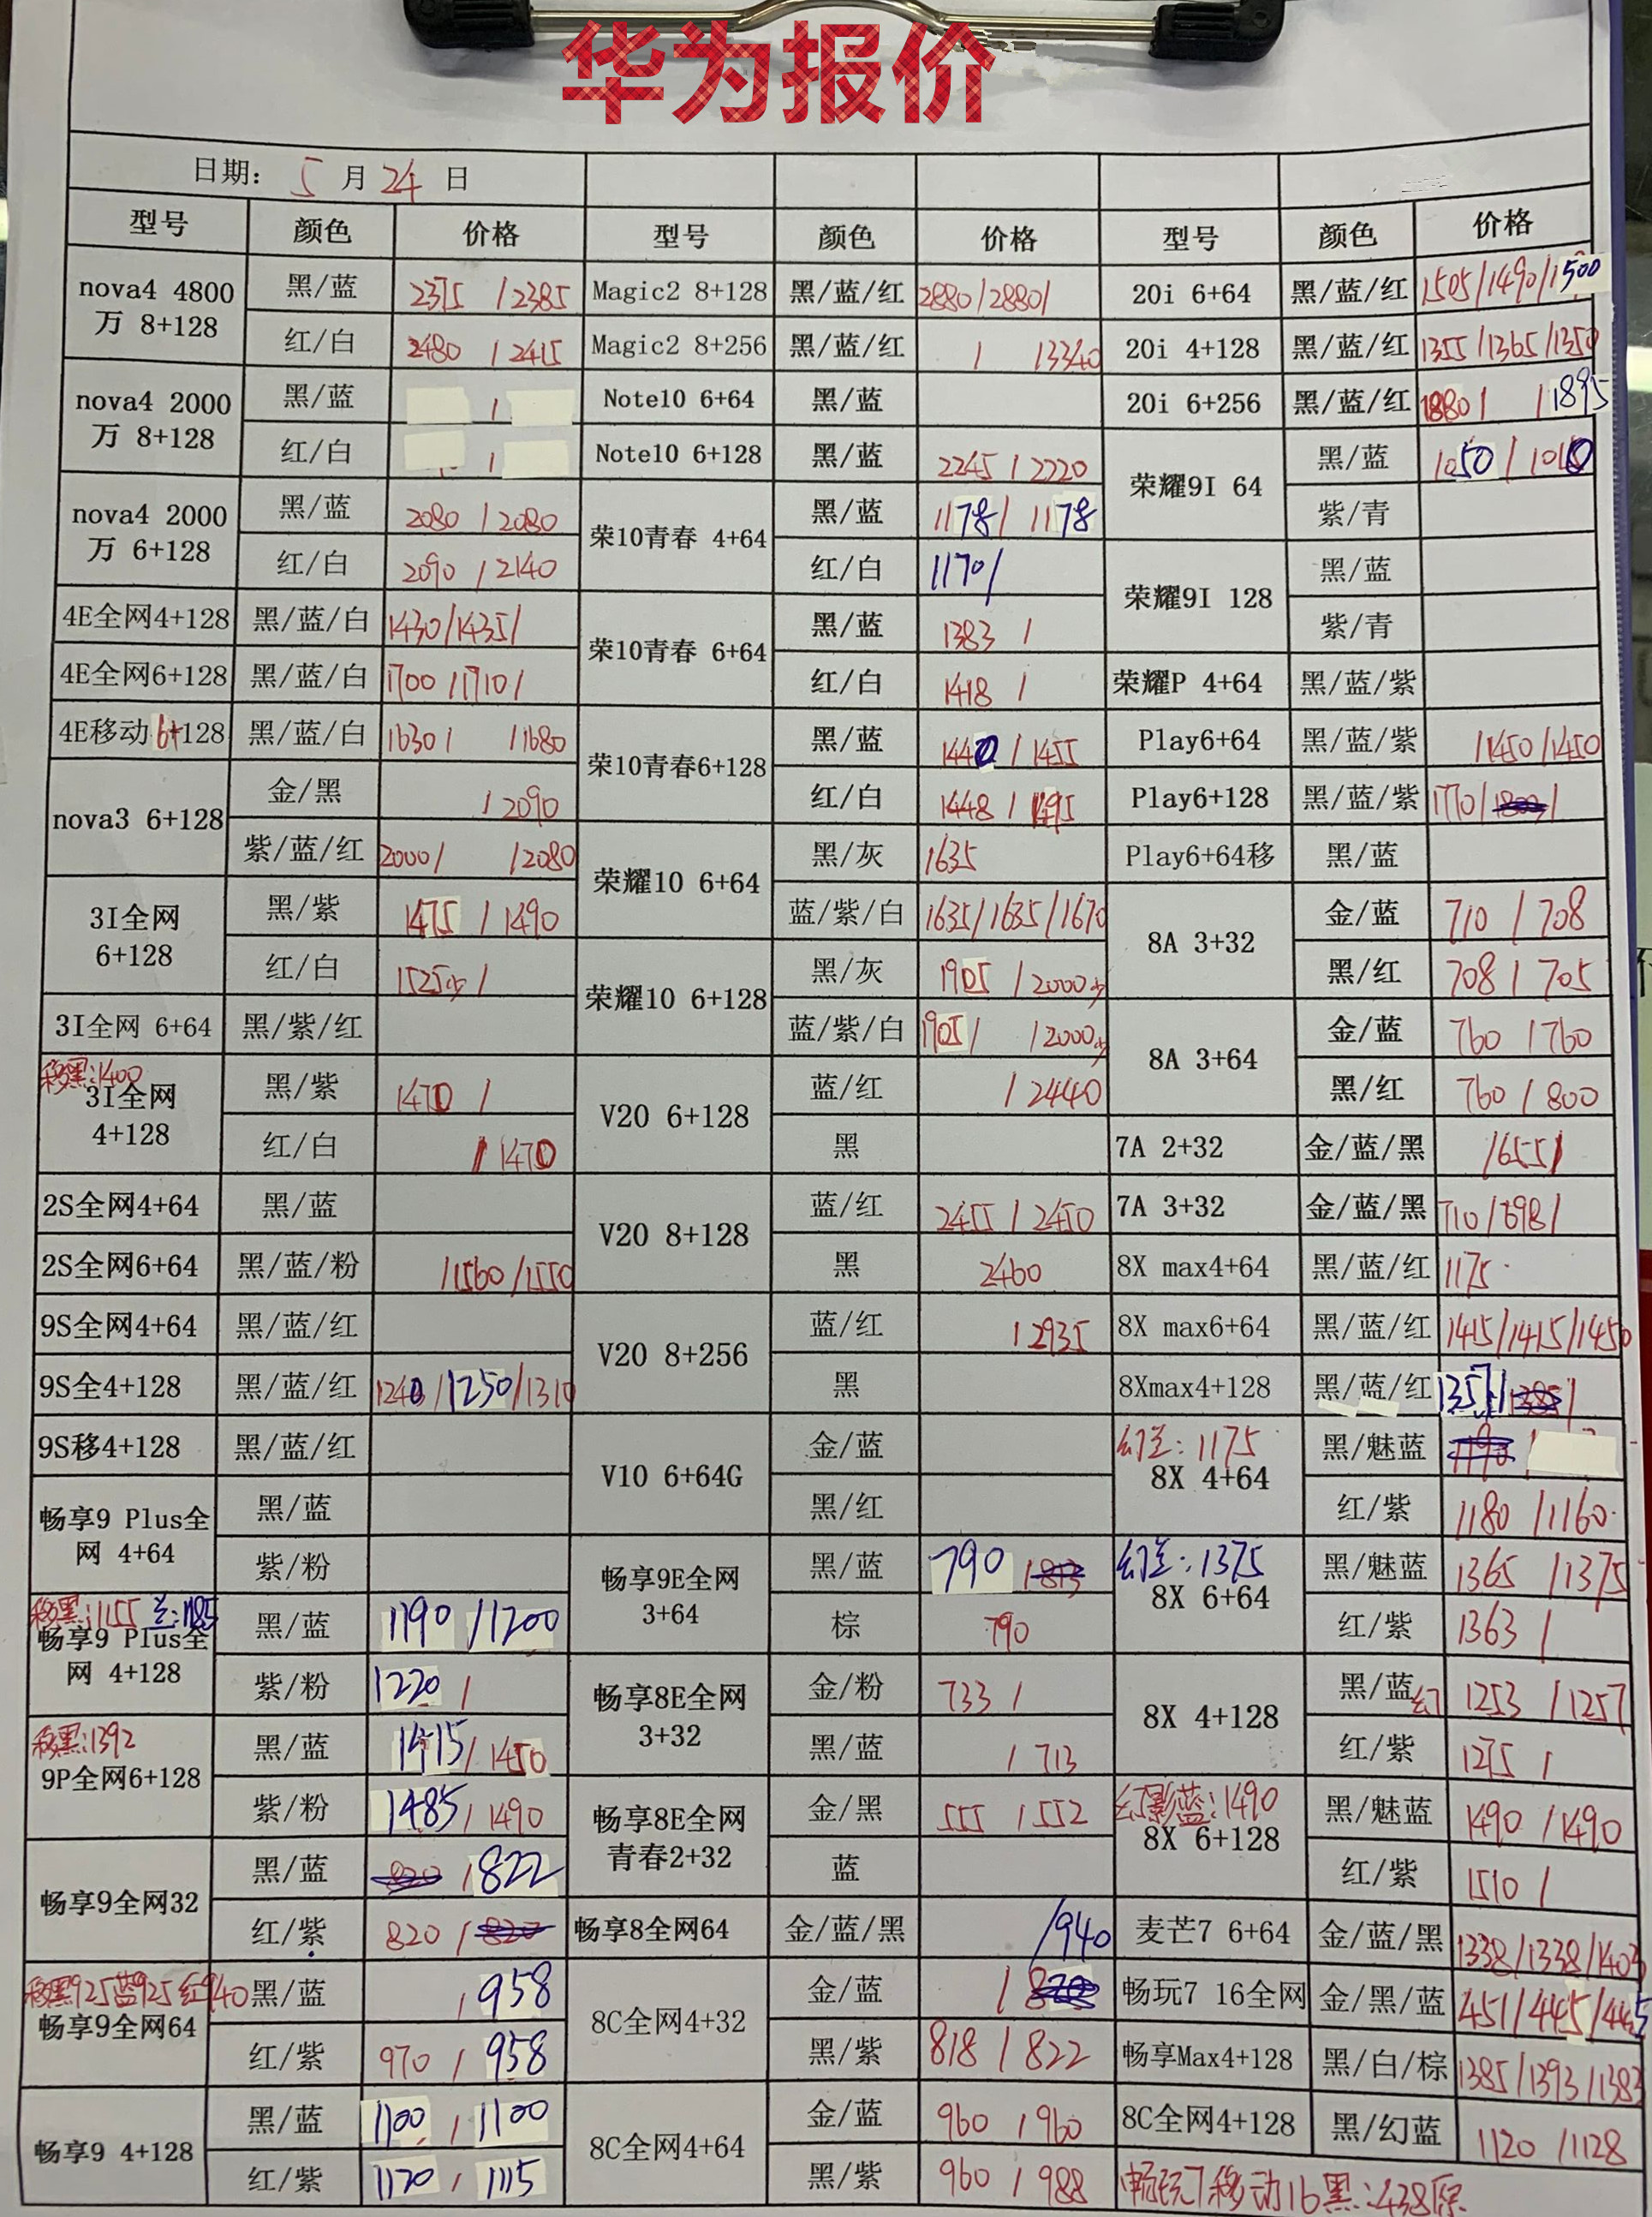 华为报价
日期: 5 月 24 日
型号 颜色 价格 型号 颜色 价格 型号 颜色 价格
nova4 4800万 8+128 黑/蓝 2375 / 2385 Magic2 8+128 黑/蓝/红 2880/2880/ 20i 6+64 黑/蓝/红 1505/1490/1500
红/白 2480 / 2415 Magic2 8+256 黑/蓝/红 / /3340 20i 4+128 黑/蓝/红 1355/1365/1350
nova4 2000万 8+128 黑/蓝 / Note10 6+64 黑/蓝 20i 6+256 黑/蓝/红 1880/ /1895
红/白 / Note10 6+128 黑/蓝 2245 / 2220 荣耀9I 64 黑/蓝 1050 / 1010
nova4 2000万 6+128 黑/蓝 2080 / 2080 荣10青春 4+64 黑/蓝 1178/ 1178 紫/青
红/白 2090 / 2140 红/白 1170/ 荣耀9I 128 黑/蓝
4E全网4+128 黑/蓝/白 1430/1435/ 荣10青春 6+64 黑/蓝 1383 / 紫/青
4E全网6+128 黑/蓝/白 1700/1710/ 红/白 1418 / 荣耀P 4+64 黑/蓝/紫
4E移动6+128 黑/蓝/白 1630/ /1680 荣10青春6+128 黑/蓝 1440 / 1455 Play6+64 黑/蓝/紫 /1450/1450
nova3 6+128 金/黑 / 2090 红/白 1448 / 1495 Play6+128 黑/蓝/紫 1770/ /
紫/蓝/红 2000/ /2080 荣耀10 6+64 黑/灰 1635 Play6+64移 黑/蓝
3I全网 6+128 黑/紫 1475 / 1490 蓝/紫/白 1635/1635/1670 8A 3+32 金/蓝 710 / 708
红/白 1525少 / 荣耀10 6+128 黑/灰 1905 / 2000少 黑/红 708 / 705
3I全网 6+64 黑/紫/红 蓝/紫/白 1905/ /2000少 8A 3+64 金/蓝 760 / 760
移黑:1400 3I全网 4+128 黑/紫 1470 / V20 6+128 蓝/红 / 2440 黑/红 760 / 800
红/白 / 1470 黑 7A 2+32 金/蓝/黑 /655/
2S全网4+64 黑/蓝 V20 8+128 蓝/红 2455 / 2450 7A 3+32 金/蓝/黑 710/698/
2S全网6+64 黑/蓝/粉 /1560/1550 黑 2460 8X max4+64 黑/蓝/红 1175
9S全网4+64 黑/蓝/红 V20 8+256 蓝/红 / 2935 8X max6+64 黑/蓝/红 1415/1415/1450
9S全4+128 黑/蓝/红 1240/1250/1310 黑 8Xmax4+128 黑/蓝/红 1357/1385/
9S移4+128 黑/蓝/红 V10 6+64G 金/蓝 幻兰:1175 8X 4+64 黑/魅蓝 1190 /
畅享9 Plus全网 4+64 黑/蓝 黑/红 红/紫 1180 /1160
紫/粉 畅享9E全网 3+64 黑/蓝 790 / 813 幻兰:1375 8X 6+64 黑/魅蓝 1365 /1375
移黑:1155 兰:1185 畅享9 Plus全网 4+128 黑/蓝 1190 /1200 棕 790 红/紫 1363 /
紫/粉 1220 / 畅享8E全网 3+32 金/粉 733 / 8X 4+128 黑/蓝幻 1253 /1257
移黑:1392 9P全网6+128 黑/蓝 1415/ 1450 黑/蓝 / 713 红/紫 1275 /
紫/粉 1485/ 1490 畅享8E全网 青春2+32 金/黑 555 / 552 幻影蓝:1490 8X 6+128 黑/魅蓝 1490 /1490
畅享9全网32 黑/蓝 820 / 822 蓝 红/紫 1510 /
红/紫 820 / 820 畅享8全网64 金/蓝/黑 /940 麦芒7 6+64 金/蓝/黑 1338/1338/1403
移黑925蓝925红940 畅享9全网64 黑/蓝 / 958 8C全网4+32 金/蓝 / 820 畅玩7 16全网 金/黑/蓝 451/445/445
红/紫 970 / 958 黑/紫 818 / 822 畅享Max4+128 黑/白/棕 1385/1393/1383
畅享9 4+128 黑/蓝 1100 / 1100 8C全网4+64 金/蓝 960 / 960 8C全网4+128 黑/幻蓝 1120 /1128
红/紫 1120 / 1115 黑/紫 960 / 988 畅玩7移动16黑:438原